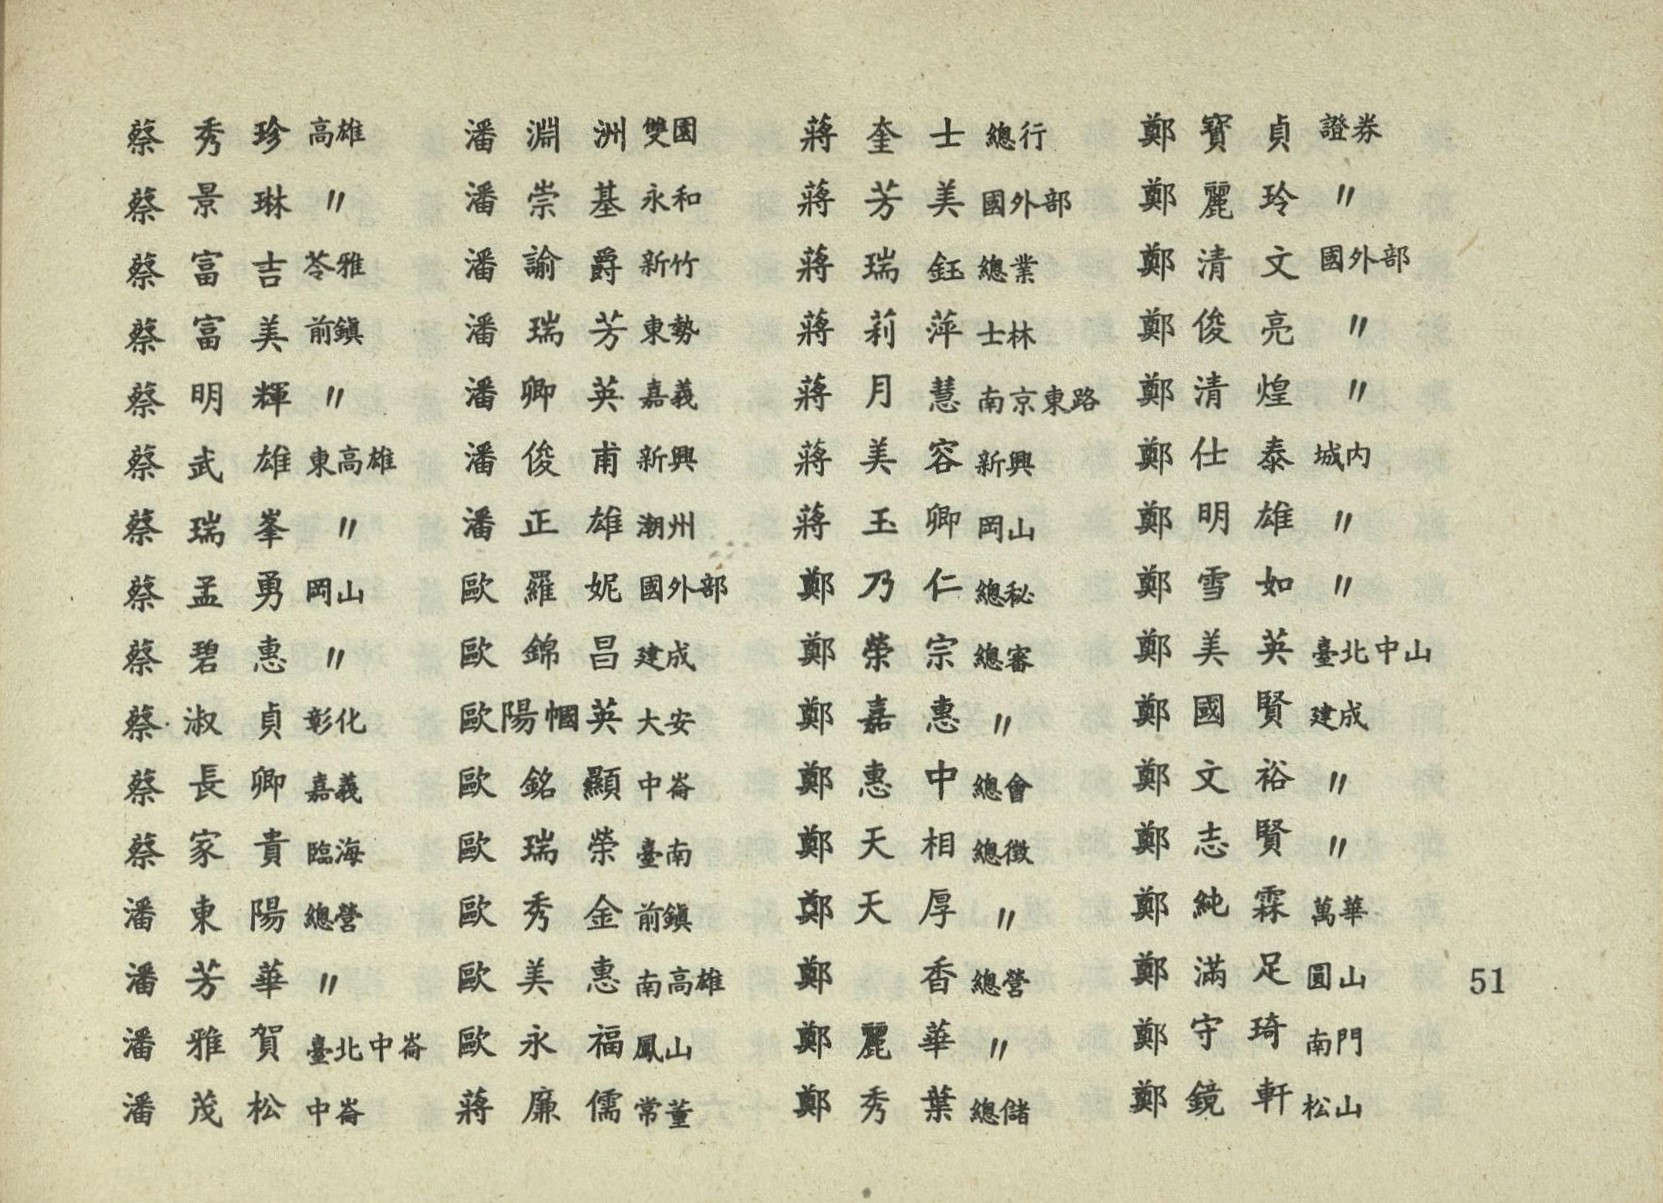 蔡秀珍 高雄
蔡景琳 〃
蔡富吉 苓雅
蔡富美 前鎮
蔡明輝 〃
蔡武雄 東高雄
蔡瑞峯 〃
蔡孟勇 岡山
蔡碧惠 〃
蔡淑貞 彰化
蔡長卿 嘉義
蔡家貴 臨海
潘東陽 總營
潘芳華 〃
潘雅賀 臺北中崙
潘茂松 中崙
潘淵洲 雙園
潘崇基 永和
潘諭爵 新竹
潘瑞芳 東勢
潘卿英 嘉義
潘俊甫 新興
潘正雄 潮州
歐羅妮 國外部
歐錦昌 建成
歐陽幗英 大安
歐銘顯 中崙
歐瑞榮 臺南
歐秀金 前鎮
歐美惠 南高雄
歐永福 鳳山
蔣廉儒 常董
蔣奎士 總行
蔣芳美 國外部
蔣瑞鈺 總業
蔣莉萍 士林
蔣月慧 南京東路
蔣美容 新興
蔣玉卿 岡山
鄭乃仁 總秘
鄭榮宗 總審
鄭嘉惠 〃
鄭惠中 總會
鄭天相 總徵
鄭天厚 〃
鄭香 總營
鄭麗華 〃
鄭秀葉 總儲
鄭寶貞 證券
鄭麗玲 〃
鄭清文 國外部
鄭俊亮 〃
鄭清煌 〃
鄭仕泰 城内
鄭明雄 〃
鄭雪如 〃
鄭美英 臺北中山
鄭國賢 建成
鄭文裕 〃
鄭志賢 〃
鄭純霖 萬華
鄭滿足 圓山
鄭守琦 南門
鄭鏡軒 松山
51